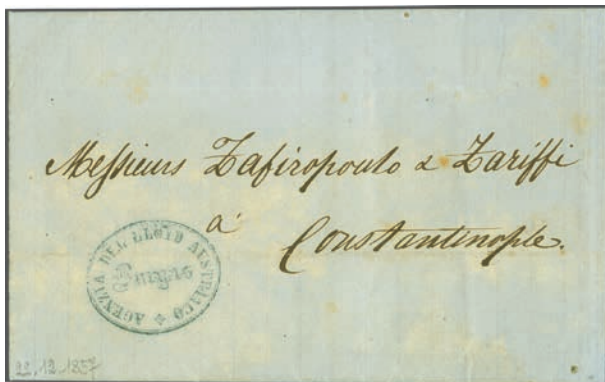 Messieurs Zafiropoulo & Zariffi
à
Constantinople.
AGENZIA DEL LLOYD AUSTRIACO
Burgas
22.12.1857